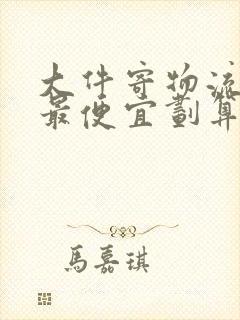 大件寄物流
最便宜劃算
馬嘉琪